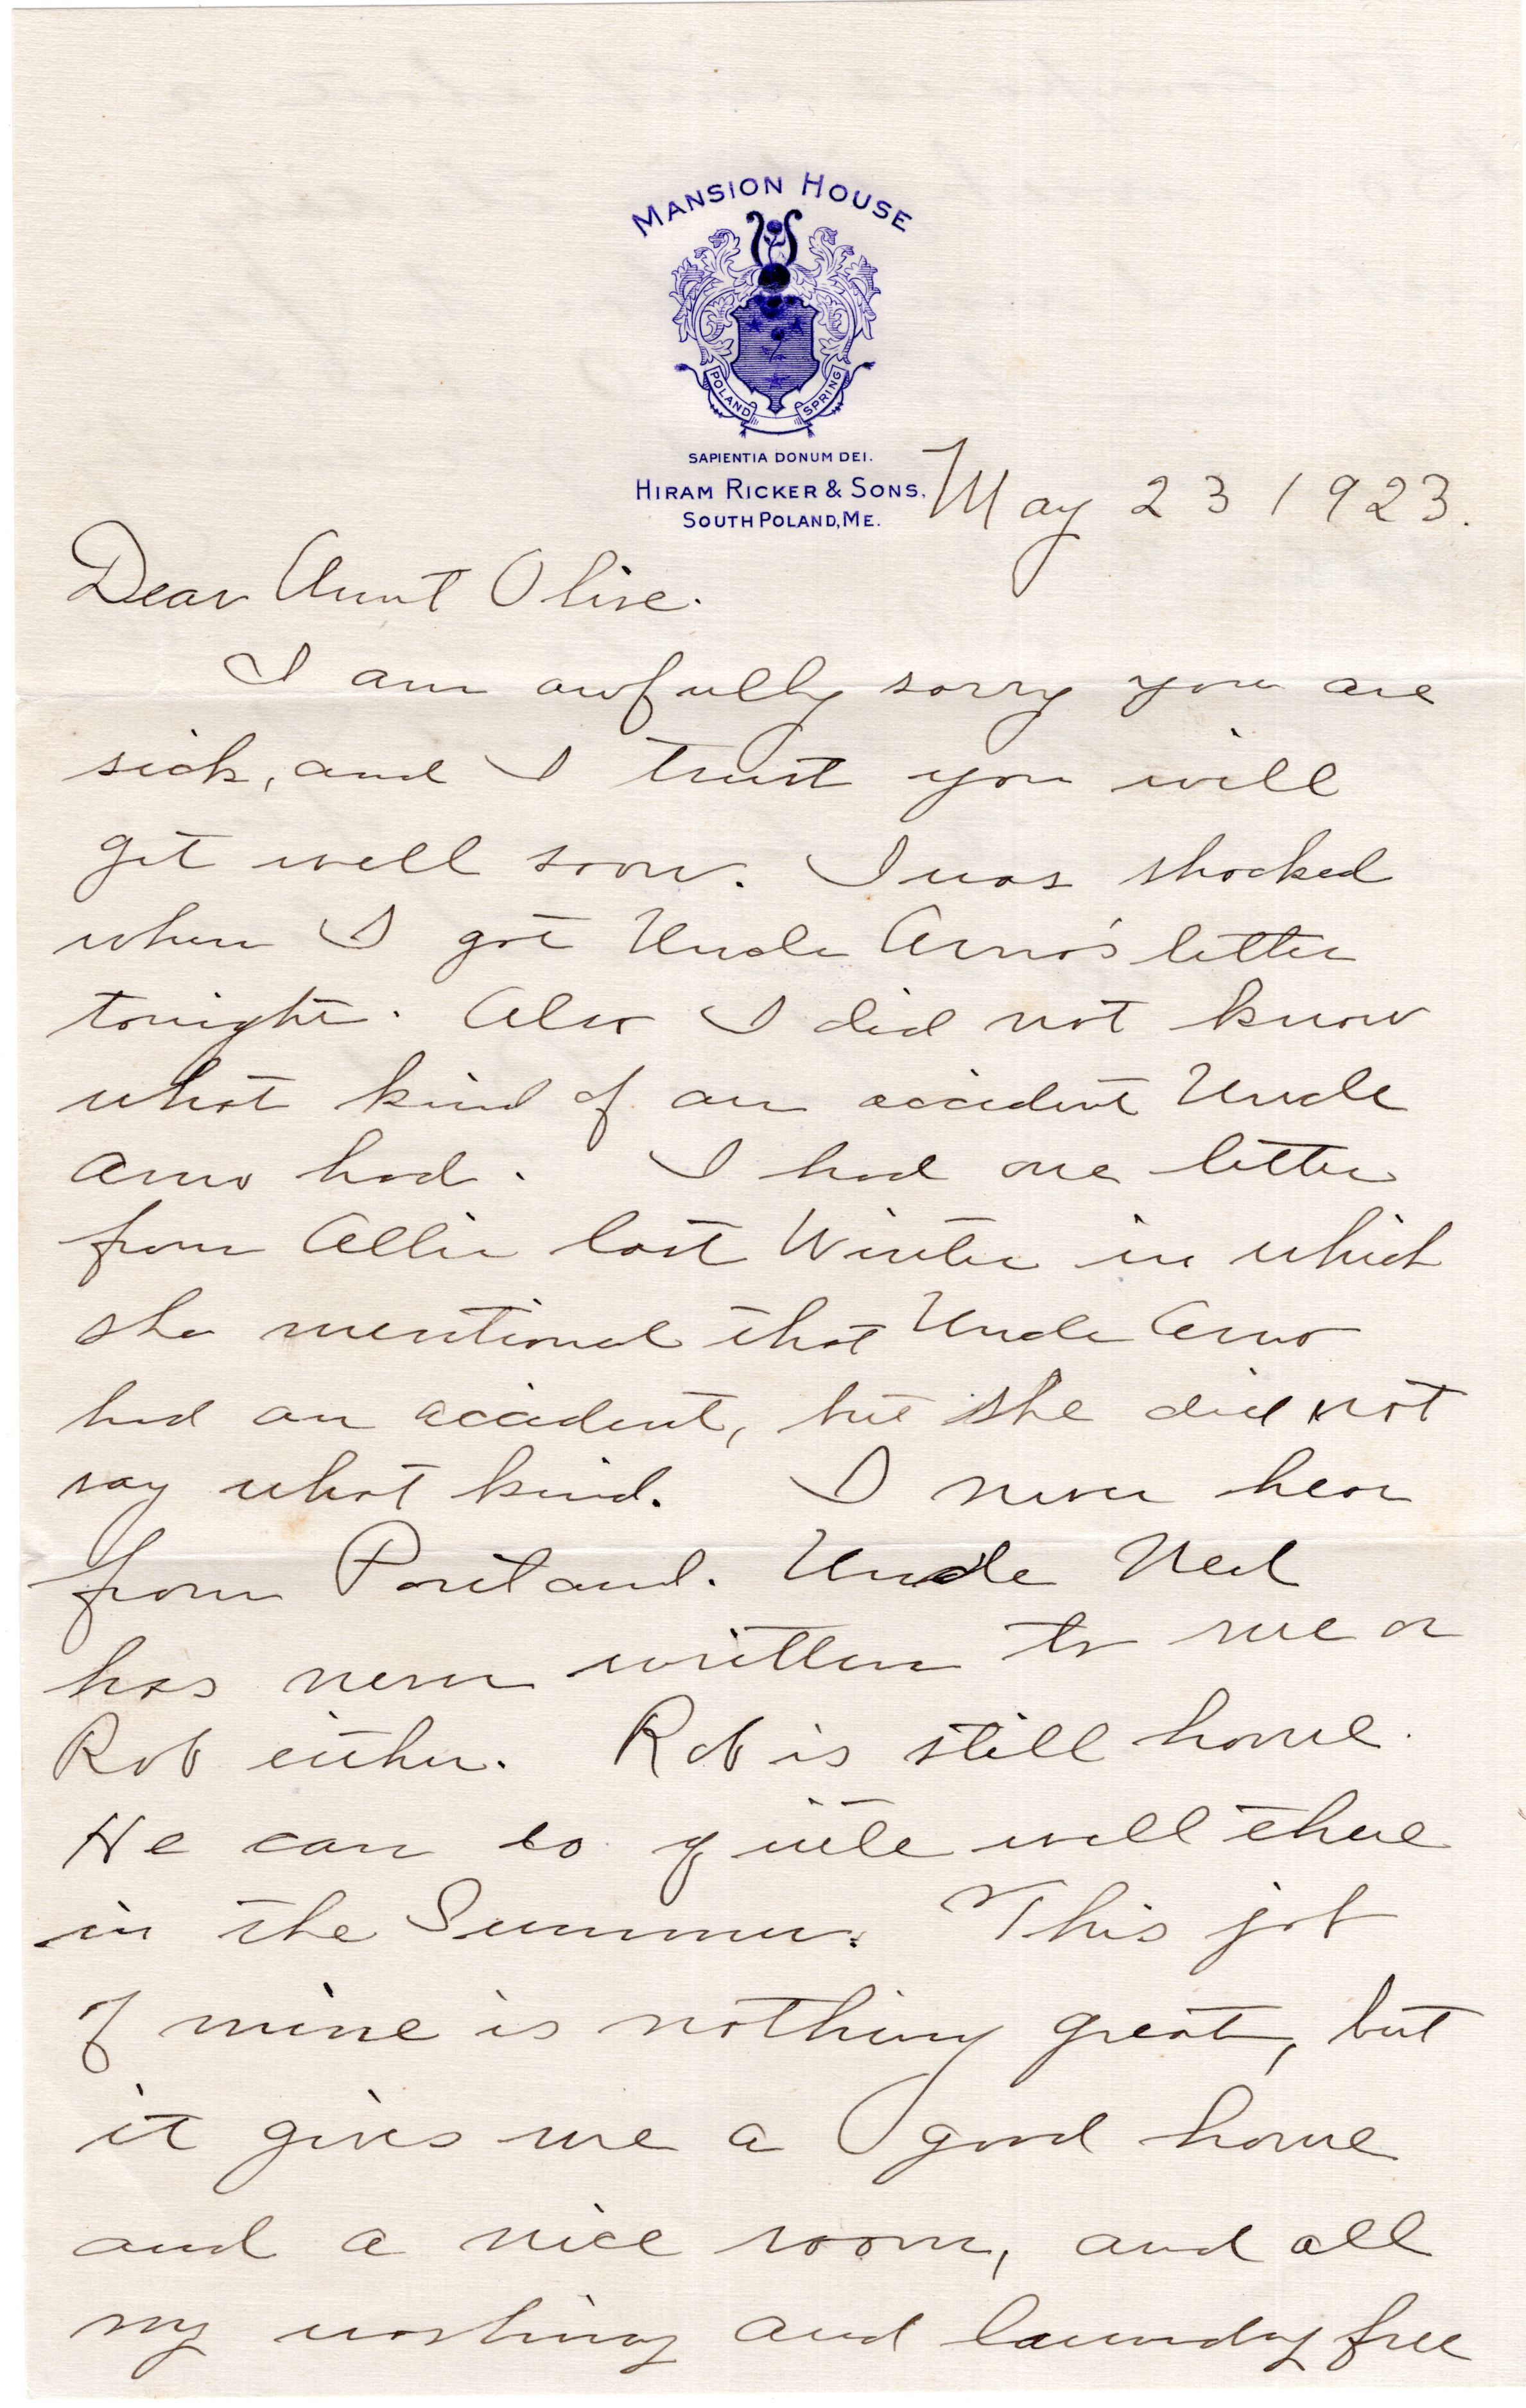 MANSION HOUSE
POLAND SPRING
SAPIENTIA DONUM DEI.
HIRAM RICKER & SONS.
SOUTH POLAND, ME.
May 23 1923.
Dear Aunt Olive.
I am awfully sorry you are
sick, and I trust you will
get well soon. I was shocked
when I got Uncle Arno's letter
tonight. Also I did not know
what kind of an accident Uncle
Arno had. I had one letter
from Allie last Winter in which
she mentioned that Uncle Arno
had an accident, but she did not
say what kind. I never hear
from Portland. Uncle Ned
has never written to me or
Rob either. Rob is still home.
He can do quite well there
in the Summer. This job
of mine is nothing great, but
it gives me a good home
and a nice room, and all
my washing and laundry free